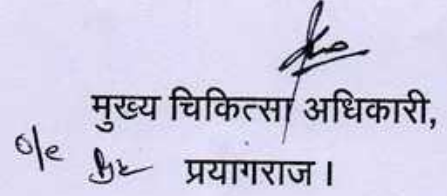 मुख्य चिकित्सा अधिकारी,
o/c प्रयागराज।